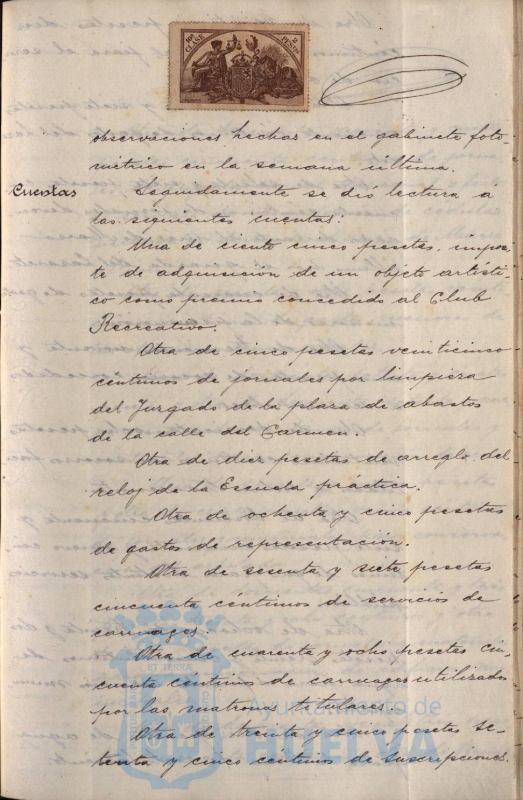 10ª CLASE
2 PESETAS
observaciones hechas en el gabinete foto-
métrico en la semana última.
Cuentas
Seguidamente se dió lectura á
las siguientes cuentas:
Una de ciento cinco pesetas, impor-
te de adquisición de un objeto artísti-
co como premio concedido al Club
Recreativo.
Otra de cinco pesetas veinticinco
céntimos de jornales por limpieza
del Juzgado de la plaza de abastos
de la calle del Carmen.
Otra de diez pesetas de arreglo del
reloj de la Escuela práctica.
Otra de ochenta y cinco pesetas
de gastos de representación.
Otra de sesenta y siete pesetas
cincuenta céntimos de servicios de
carruages.
Otra de cuarenta y ocho pesetas cin-
cuenta céntimos de carruages utilizados
por las matronas titulares.
Otra de treinta y cinco pesetas se-
tenta y cinco céntimos de suscripciones.
Ayuntamiento de
HUELVA